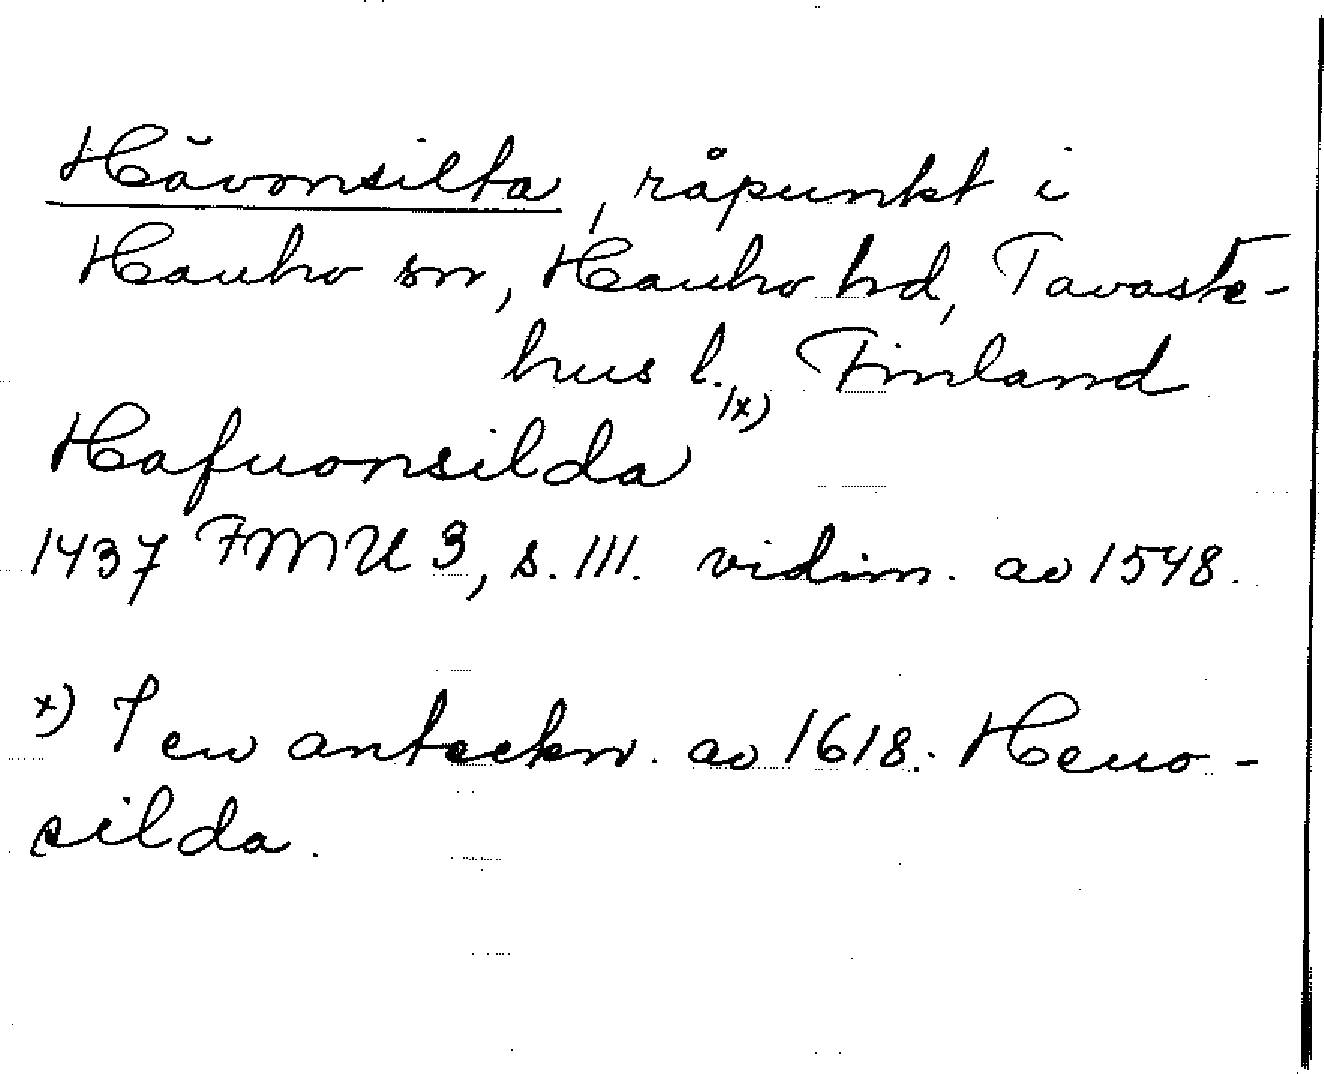 Hävonsilta, råpunkt i
Hauho sn, Hauho hd, Tavaste-
hus l., Finland
Hafuonsilda /x)
1437 FMU 3, s. 111. vidim. av 1548.
x) I en anteckn. av 1618: Heuo-
silda.